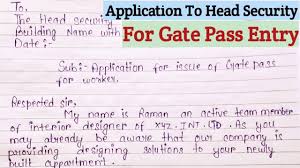 Application To Head Security
For Gate Pass Entry
To,
The Head security
Building Name with
Date :-
Sub:- Application for issue of Gate pass
for worker.
Respected sir,
My name is Raman an active team member
of interior designer of XYZ. INT. LTD. As you
may already be aware that our company is
providing designing solutions to your newly
built appartment.